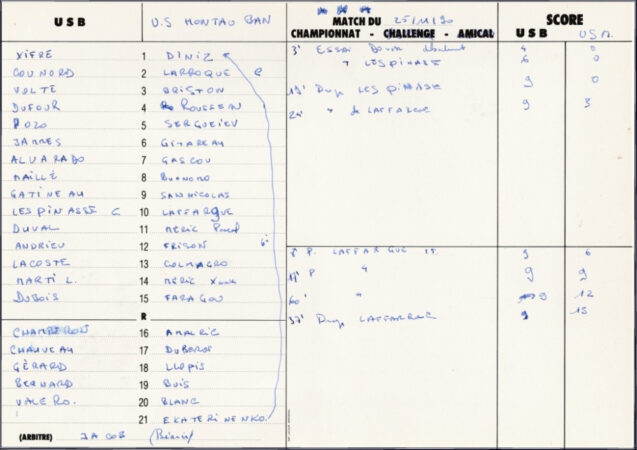 U S B U.S MONTAUBAN MATCH DU 25/11/90 SCORE
CHAMPIONNAT - CHALLENGE - AMICAL U S B U S M.
XIFRE 1 DINIZ
COUNORD 2 LARROQUE C
VOLTE 3 BRISTON
DUFOUR 4 ROUSSEAU
POZO 5 SERGUEIEV
JAMMES 6 GITAREAU
ALVARADO 7 GASCOU
MAILLÉ 8 BUONOMO
GATINEAU 9 SANNICOLAS
LESPINASSE C 10 LAFFARGUE
DUVAL 11 MÉRIC Pascal
ANDRIEU 12 FRISON 6'
LACOSTE 13 COLMAGRO
MARTI L. 14 MÉRIC
DUBOIS 15 FARAGOU
R
CHAMPERON 16 AMALRIC
CHAUVEAU 17 DUBEROS
GÉRARD 18 LLOPIS
BERNARD 19 BUIS
VALERO. 20 BLANC
21 EKATERINENKO.
(ARBITRE) JACOB
3' Essai 4 0
LESPINASSE 6 0
Drop LESPINASSE 9 0
de LAFFARGUE 9 3
P. LAFFARGUE 9 6
P " 9 9
60' " 9 12
37' Drop LAFFARGUE 9 15